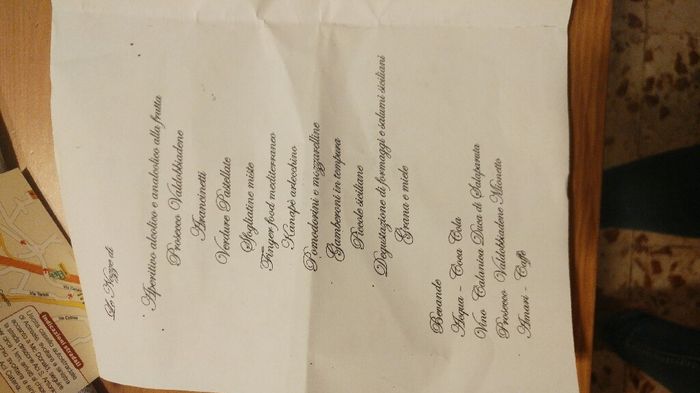 Le Nozze di
Aperitivo alcolico e analcolico alla frutta
Prosecco Valdobbiadene
Arancinetti
Verdure Pastellate
Sfogliatine miste
Finger food mediterraneo
Kanapè arlecchino
Pomodorini e mozzarelline
Gamberoni in tempura
Pizzole siciliane
Degustazione di formaggi e salumi siciliani
Grana e miele
Bevande
Acqua - Coca Cola
Vino Calanica Duca di Salaparuta
Prosecco Valdobbiadene Mionetto
Amari - Caffè
Indicazioni stradali